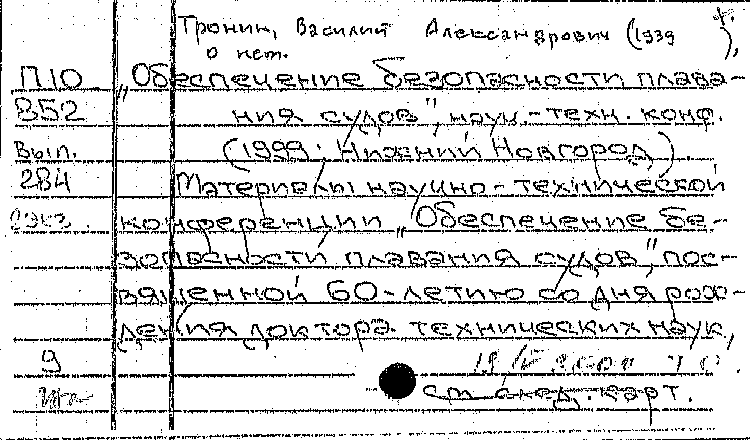 Тронин, Василий Александрович (1939 ),
о нем.
П10 „Обеспечение безопасности плава-
В52 ния судов", науч.-техн. конф.
Вып. (1999; Нижний Новгород).
284 Материалы научно-технической
2экз. конференции „Обеспечение бе-
зопасности плавания судов", пос-
вященной 60-летию со дня рож-
дения доктора технических наук,
9
см след. карт.